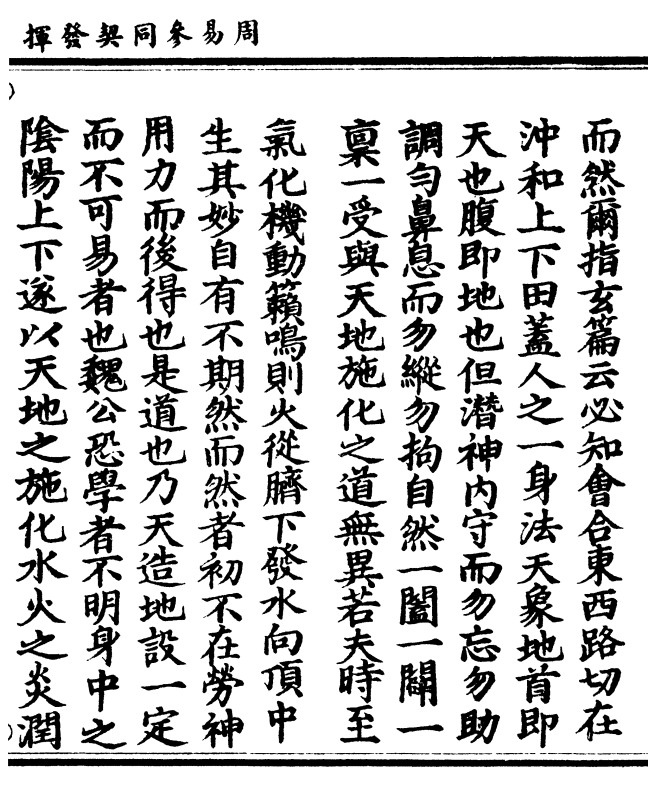 周易參同契發揮
而然爾指玄篇云必知會合東西路切在
沖和上下田蓋人之一身法天象地首即
天也腹即地也但潛神內守而勿忘勿助
調勻鼻息而勿縱勿拘自然一闔一闢一
稟一受與天地施化之道無異若夫時至
氣化機動籟鳴則火從臍下發水向頂中
生其妙自有不期然而然者初不在勞神
用力而後得也是道也乃天造地設一定
而不可易者也魏公恐學者不明身中之
陰陽上下遂以天地之施化水火之炎潤